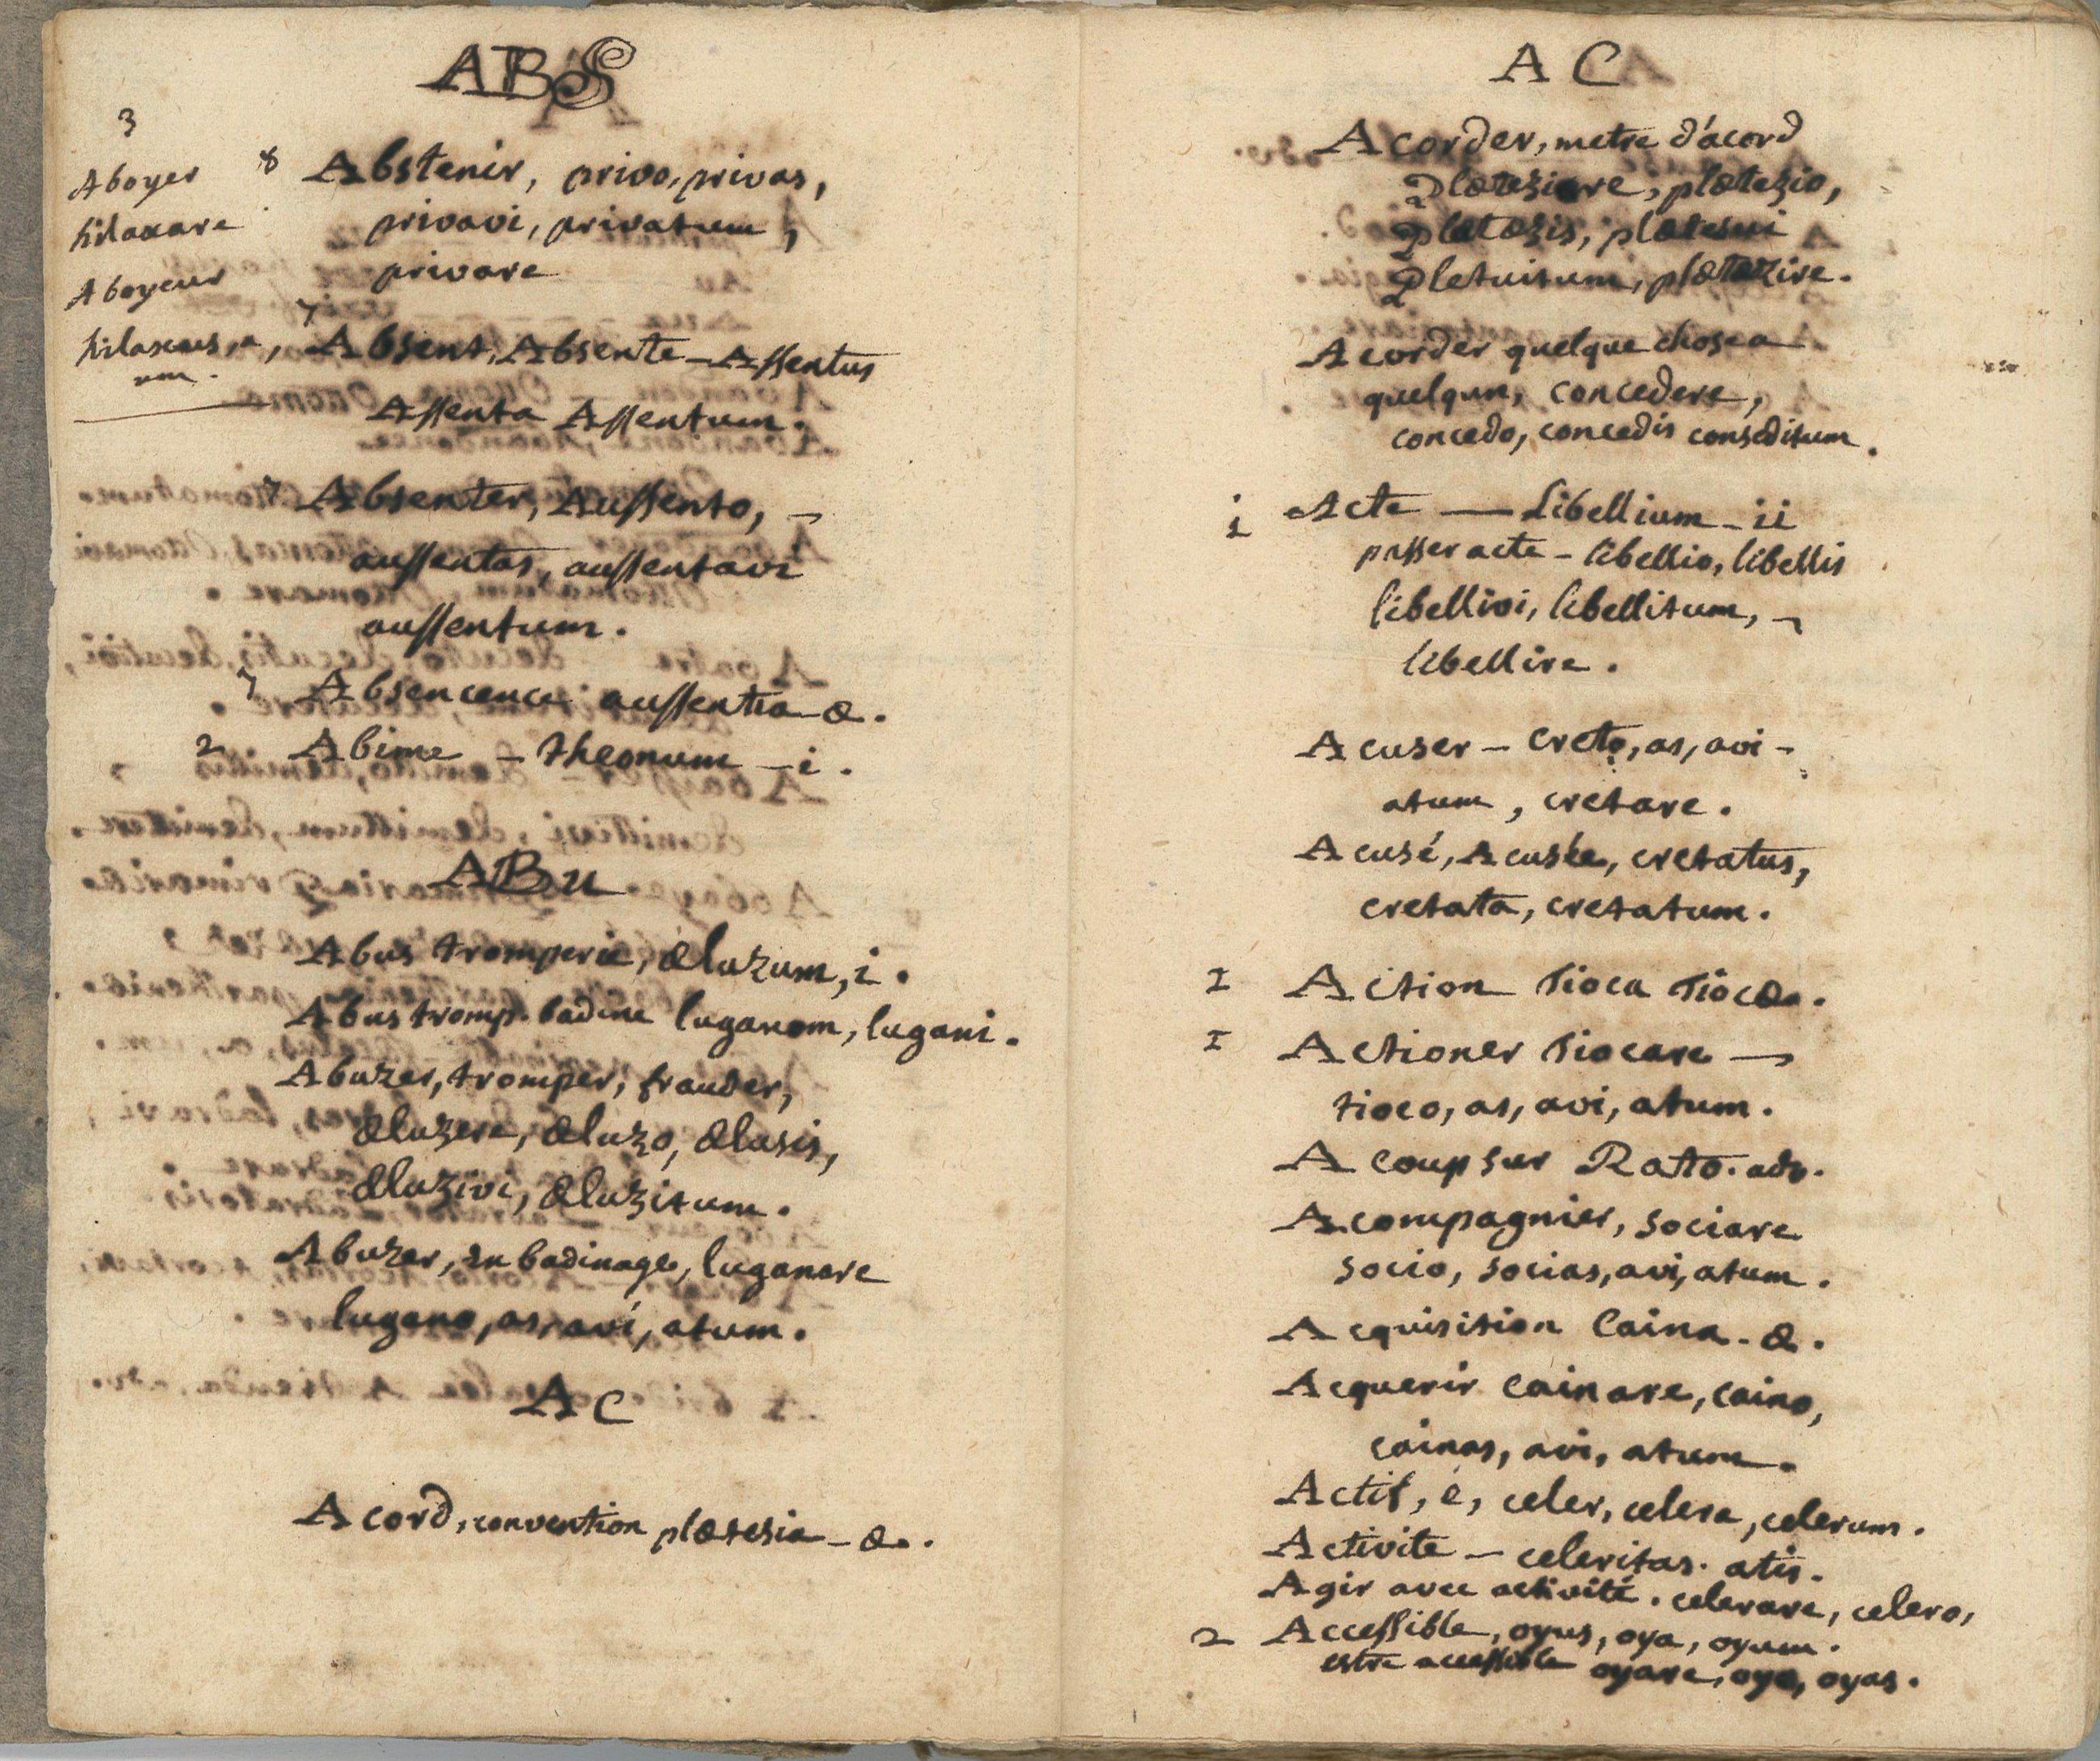 ABS
3
Aboyer
hilaxare
Aboyeur
hilaxeus, a,
um.
8 Abstenir, privo, privas,
privavi, privatum,
privare
7 Absent, Absente - Assentus
Assenta Assentum.
7 Absenter, Aussento,
aussentas, aussentavi
aussentum.
7 Absencence aussentia - æ.
2 Abime - theonum - i.
ABu
Abus tromperie, æluzum, i.
Abus tromp. badine luganom, lugani.
Abuzer, tromper, frauder,
æluzere, æluzo, ælusis,
æluzivi, æluzitum.
Abuzer, en badinage, luganare
lugano, as, avi, atum.
AC
Acord, convention plætesia - æ.
AC
Acorder, metre d'acord
plætezio,
Pletuitum,
Acorder quelque chose a
quelqun, concedere,
concedo, concedis conseditum.
i Acte — Libellium - ii
passer acte - libellio, libellis
libellivi, libellitum,
libellire.
Acuser - creto, as, avi -
atum, cretare.
Acusé, Acusée, cretatus,
cretata, cretatum.
I Action Tioca Tiocæ.
I Actioner Tiocare
tioco, as, avi, atum.
A coup sur Rato. adv.
Acompagnier, sociare
socio, socias, avi, atum.
Acquisition Caina - æ.
Acquerir cainare, caino,
cainas, avi, atum.
Actif, é, celer, celera, celerum.
Activite - celeritas. atis.
Agir avec activité. celerare, celero,
2 Accessible, oyus, oya, oyum.
estre accessible oyare, oyo, oyas.